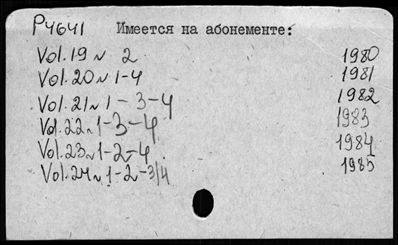 P4641 Имеется на абонементе:
Vol.19 N 2 1980
Vol.20 N 1-4 1981
Vol.21 N 1-3-4 1982
Vol.22 N 1-3-4 1983
Vol.23 N 1-2-4 1984
Vol.24 N 1-2-3/4 1985